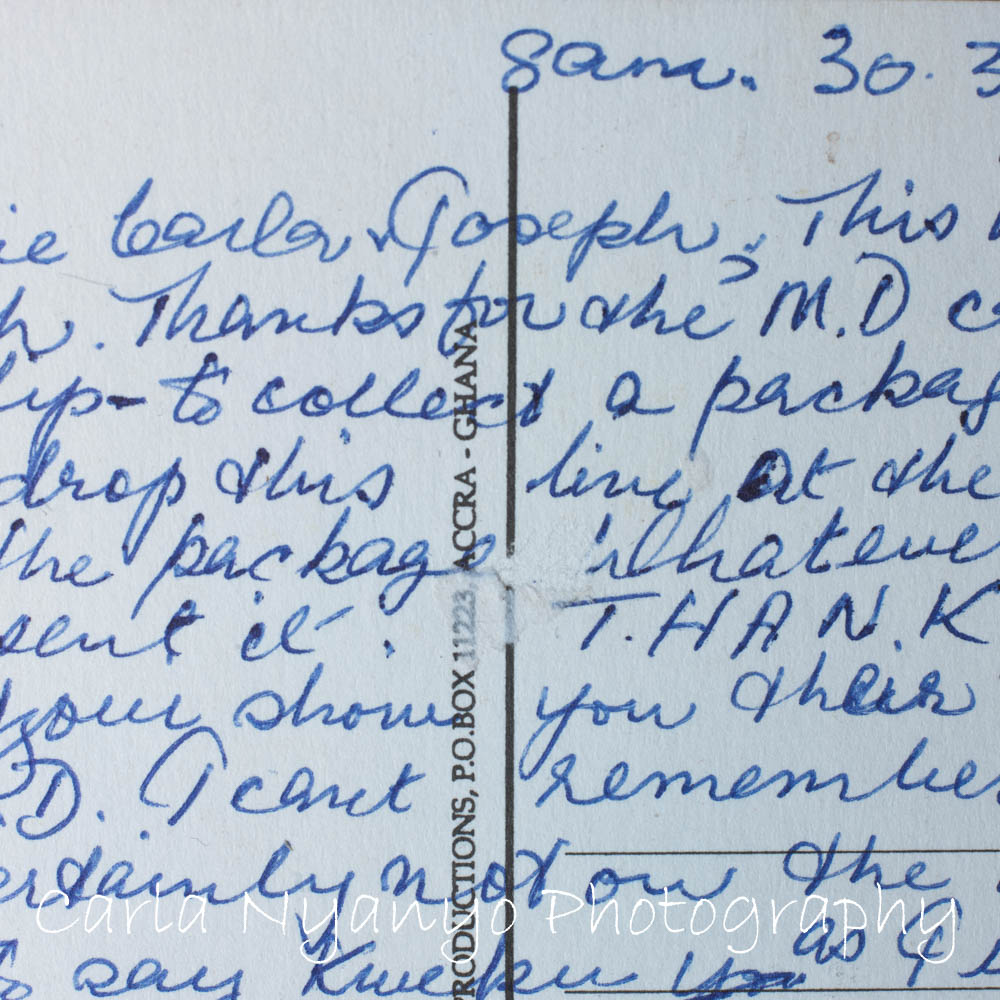 8am. 30.3
ie Carla, Joseph, This
h. Thanks for the M.D c
lip- to collect a packag
drop this line at the
the package Whateve
sent it. T.HAN.K
your show you their
.D. I cant remembe
ertainly not on the
to say Kweku as I
PRODUCTIONS, P.O.BOX 11223, ACCRA - GHANA
Carla Nyanyo Photography